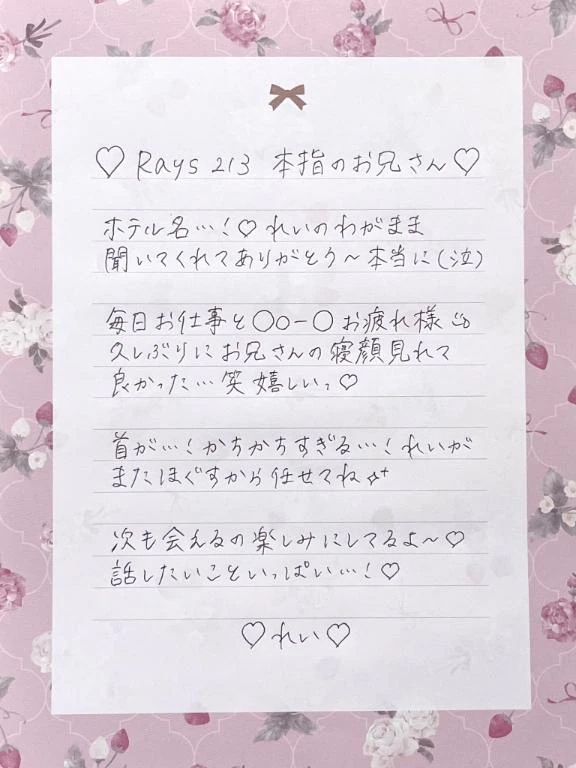 ♡ Rays 213 本指のお兄さん♡
ホテル名…!♡ れいのわがまま
聞いてくれてありがとう〜本当に(泣)
毎日お仕事と〇〇ー〇お疲れ様
久しぶりにお兄さんの寝顔見れて
良かった…笑 嬉しいっ♡
首が…!かちかちすぎる…!れいが
またほぐすから任せてね
次も会えるの楽しみにしてるよ〜♡
話したいこといっぱい…!♡
♡れい♡